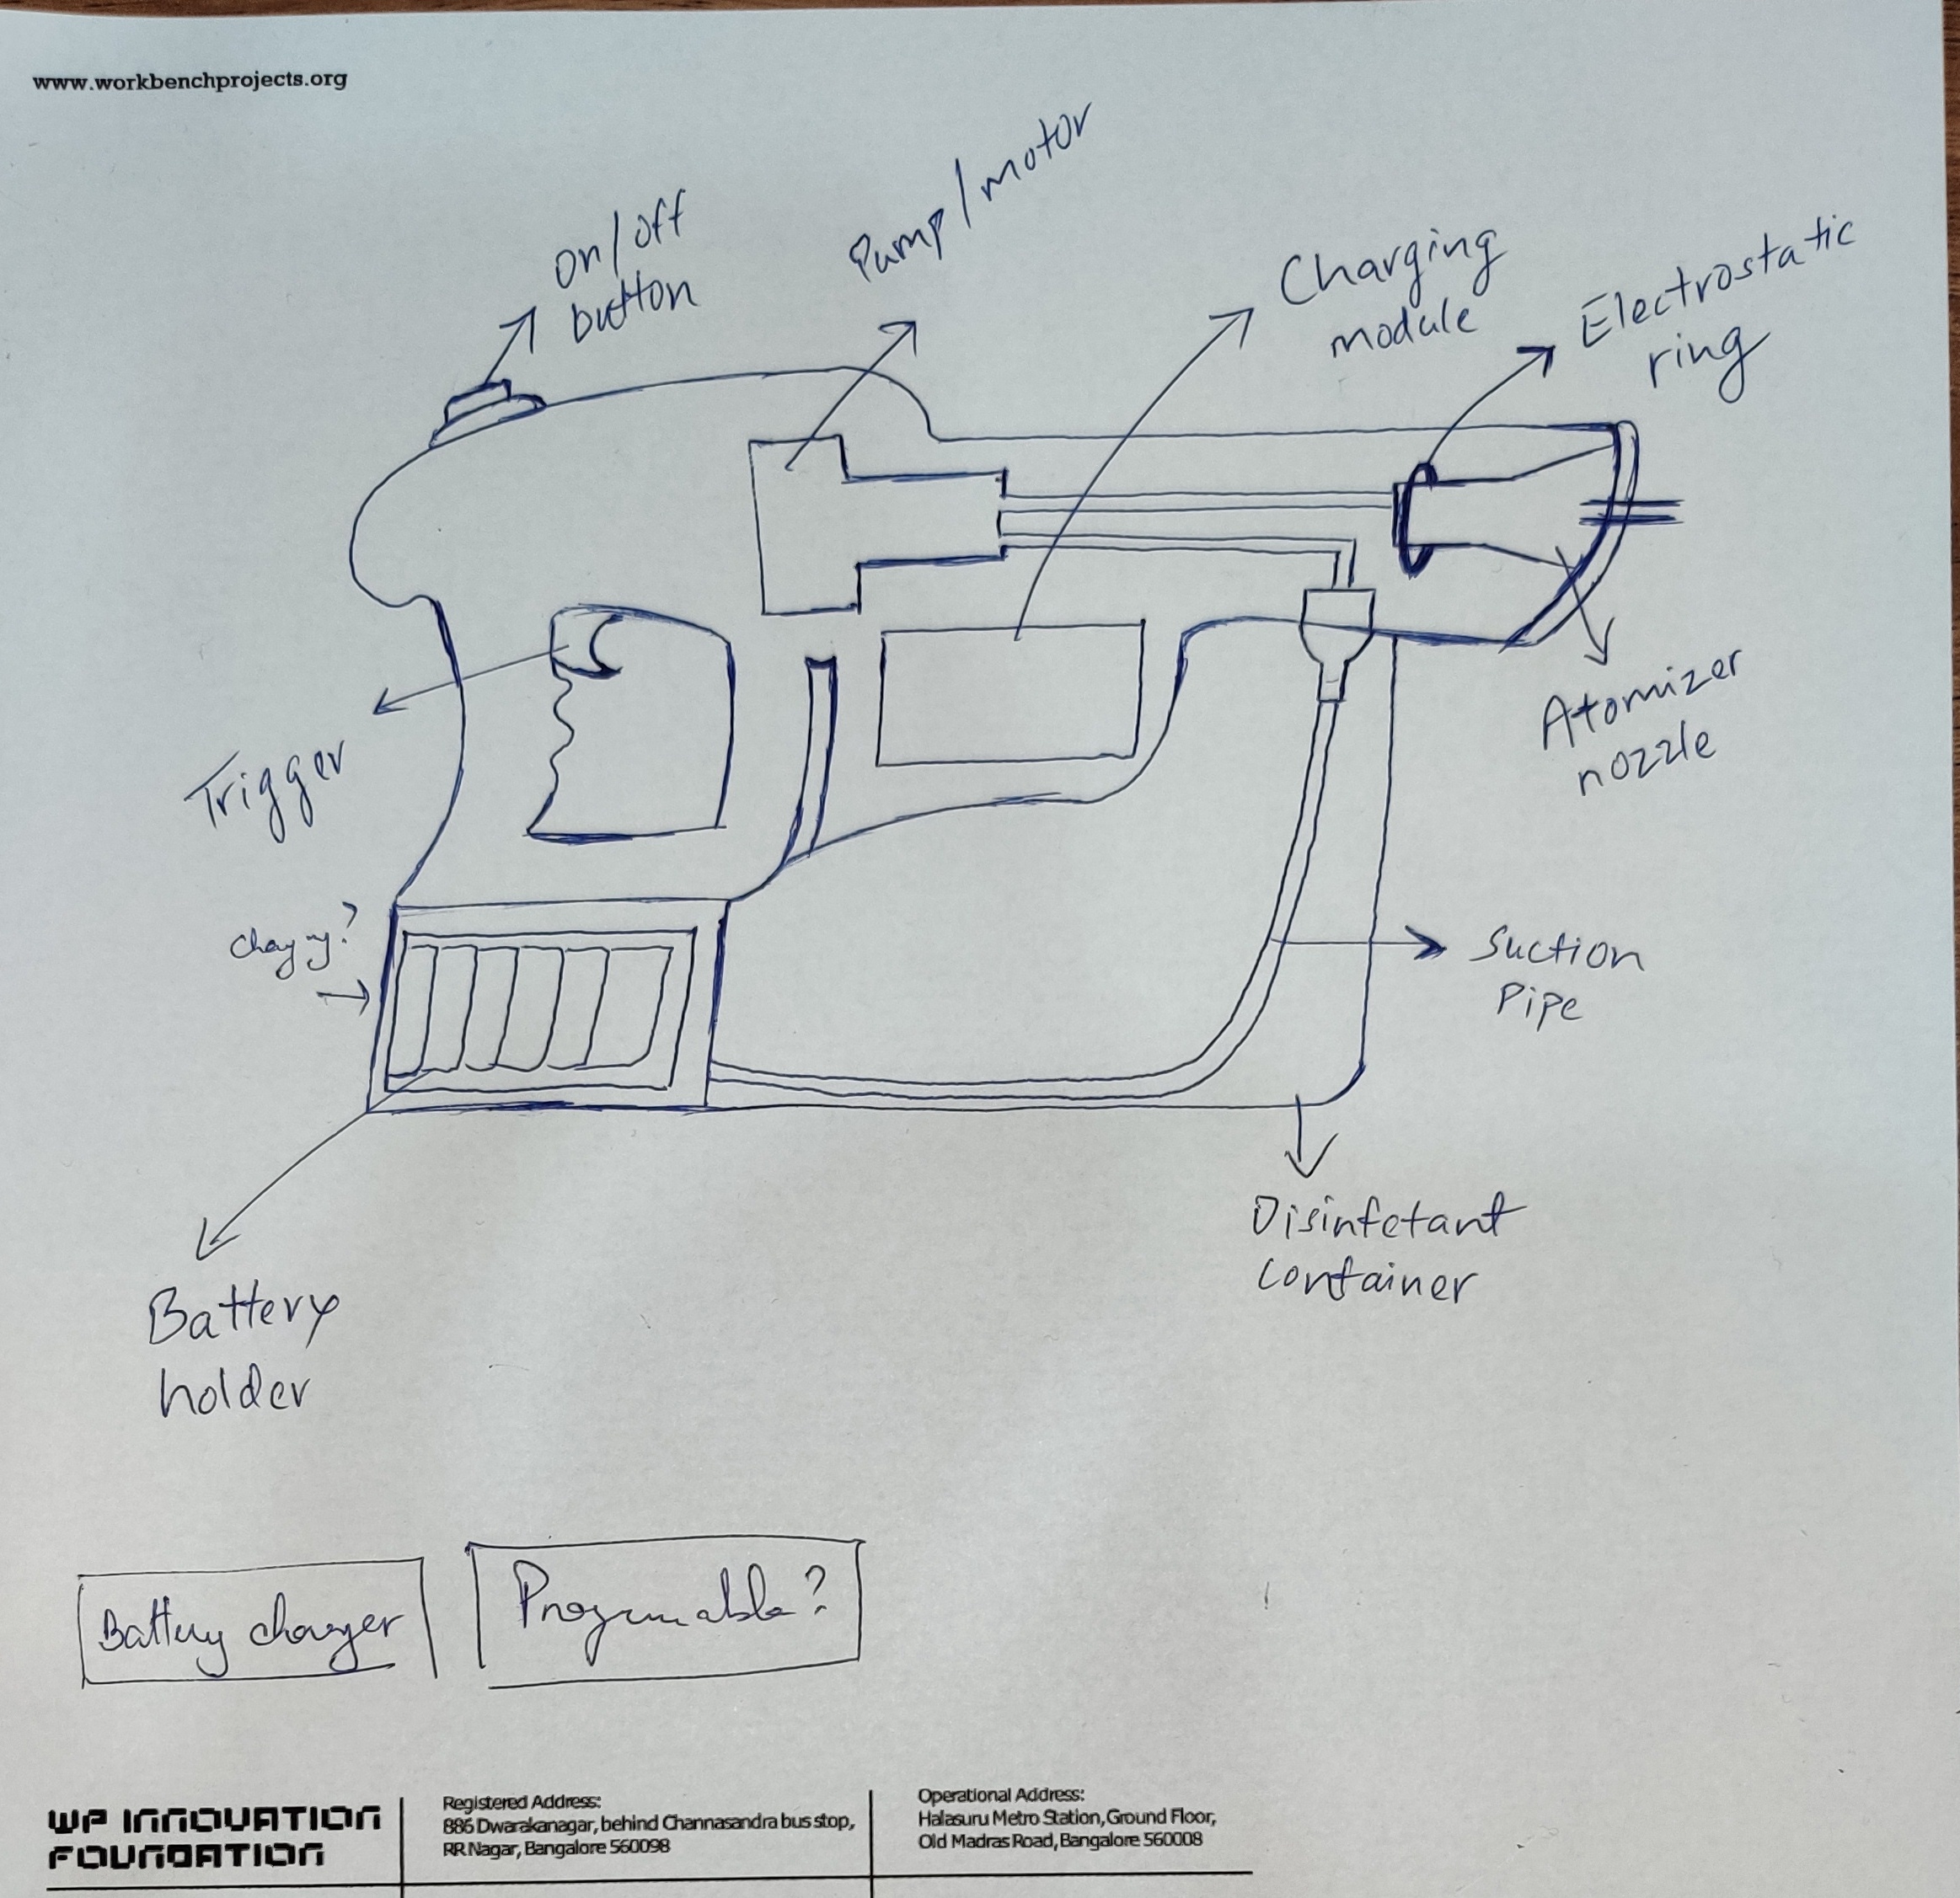 www.workbenchprojects.org
on/off
button
Pump/motor
Charging
module
Electrostatic
ring
Trigger
Atomizer
nozzle
Charging?
Suction
Pipe
Disinfetant
Container
Battery
holder
Battery charger
Programable?
WP INNOVATION
FOUNDATION
Registered Address:
886 Dwarakanagar, behind Channasandra bus stop,
RR Nagar, Bangalore 560098
Operational Address:
Halasuru Metro Station, Ground Floor,
Old Madras Road, Bangalore 560008